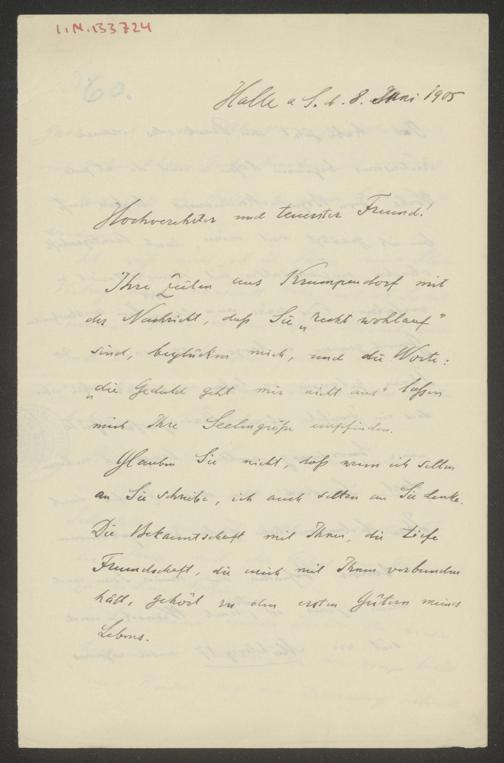 I.N. 133724
60.
Halle a S. d. 8. Juni 1905
Hochverehrter und teuerster Freund!
Ihre Zeilen aus Krumpendorf mit
der Nachricht, daß Sie „recht wohlauf"
sind, beglücken mich, und die Worte:
„die Geduld geht mir nicht aus" laßen
mich Ihre Seelengröße empfinden.
Glauben Sie nicht, daß wenn ich selten
an Sie schreibe, ich auch selten an Sie denke.
Die Bekanntschaft mit Ihnen, die tiefe
Freundschaft, die mich mit Ihnen verbunden
hält, gehört zu den ersten Gütern meines
Lebens.